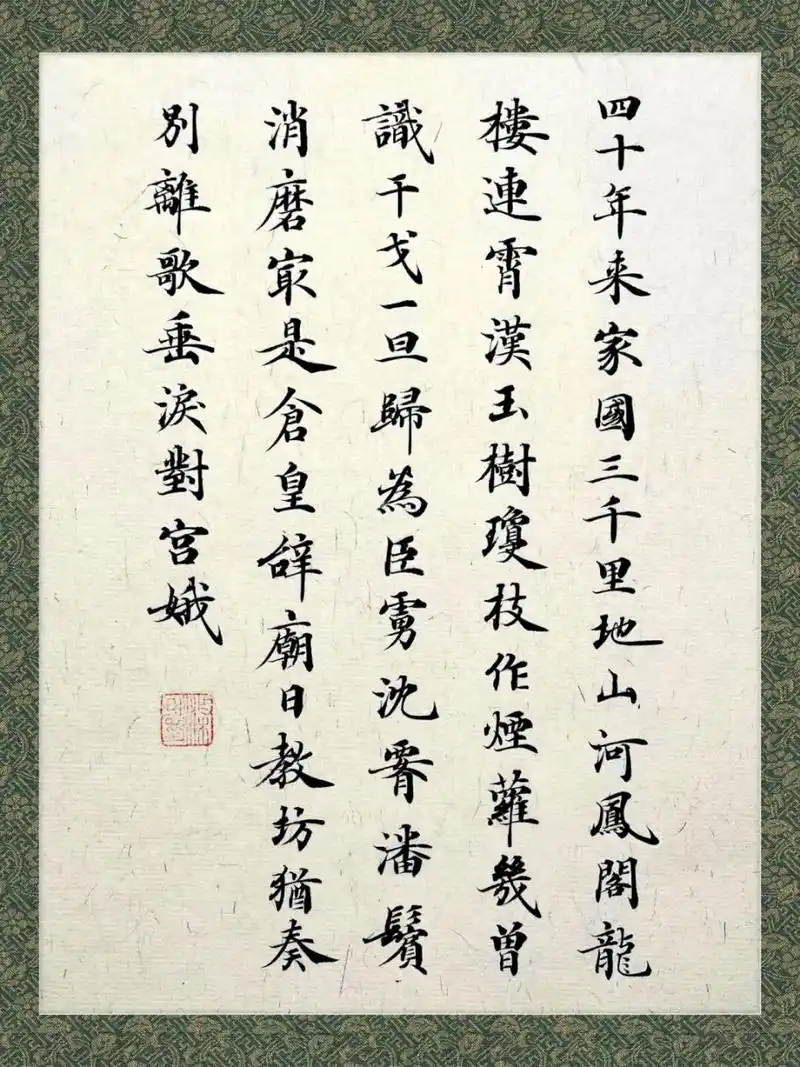 四十年来家國三千里地山河鳳閣龍
樓連霄漢玉樹瓊枝作煙蘿幾曾
識干戈一旦歸為臣虜沈腰潘鬢
消磨㝡是倉皇辭廟日教坊猶奏
別離歌垂淚對宮娥